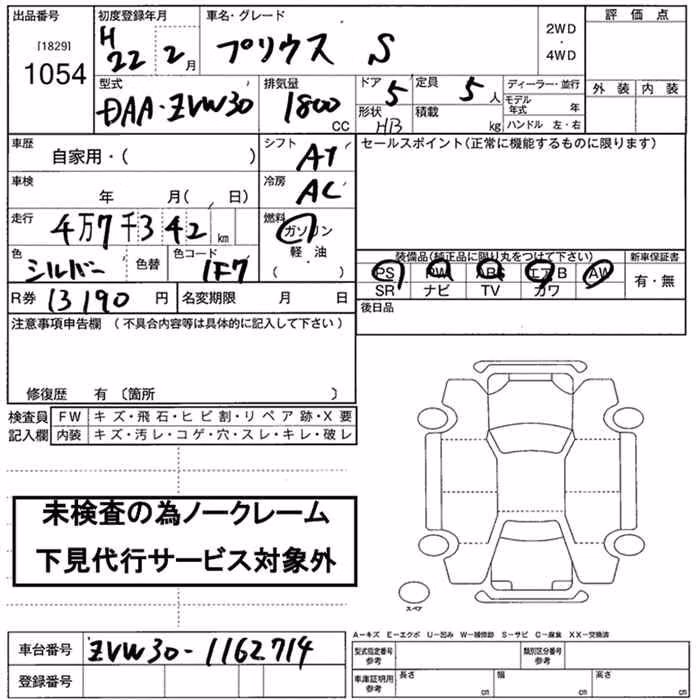 出品番号
[1829]
1054
初度登録年月
H 22 2月
車名・グレード
プリウス S
2WD
・
4WD
評価点
外装 内装
型式
DAA・ZVW30
排気量
1800
CC
ドア 5
形状 HB
定員 5人
積載 kg
ディーラー・並行
モデル年式 年
ハンドル 左・右
車歴
自家用・( )
シフト AT
車検
年 月( 日)
冷房 AC
走行 4万7千342km
燃料
ガソリン
軽・油
( )
色 シルバー
色替
色コード 1F7
R券 13190円
名変期限 月 日
セールスポイント(正常に機能するものに限ります)
装備品(純正品に限り丸をつけて下さい)
PS PW ABS エアB AW
SR ナビ TV カワ
新車保証書
有・無
後日品
注意事項申告欄 (不具合内容等は具体的に記入して下さい)
修復歴 有 〔箇所 〕
検査員記入欄
FW キズ・飛石・ヒビ割・リペア跡・X要
内装 キズ・汚レ・コゲ・穴・スレ・キレ・破レ
未検査の為ノークレーム
下見代行サービス対象外
スペア
A-キズ E-エクボ U-凹み W-補修跡 S-サビ C-腐食 XX-交換済
車台番号 ZVW30-1162714
登録番号
型式指定番号 参考
類別区分番号 参考
車庫証明用 参考
長さ cm
幅 cm
高さ cm